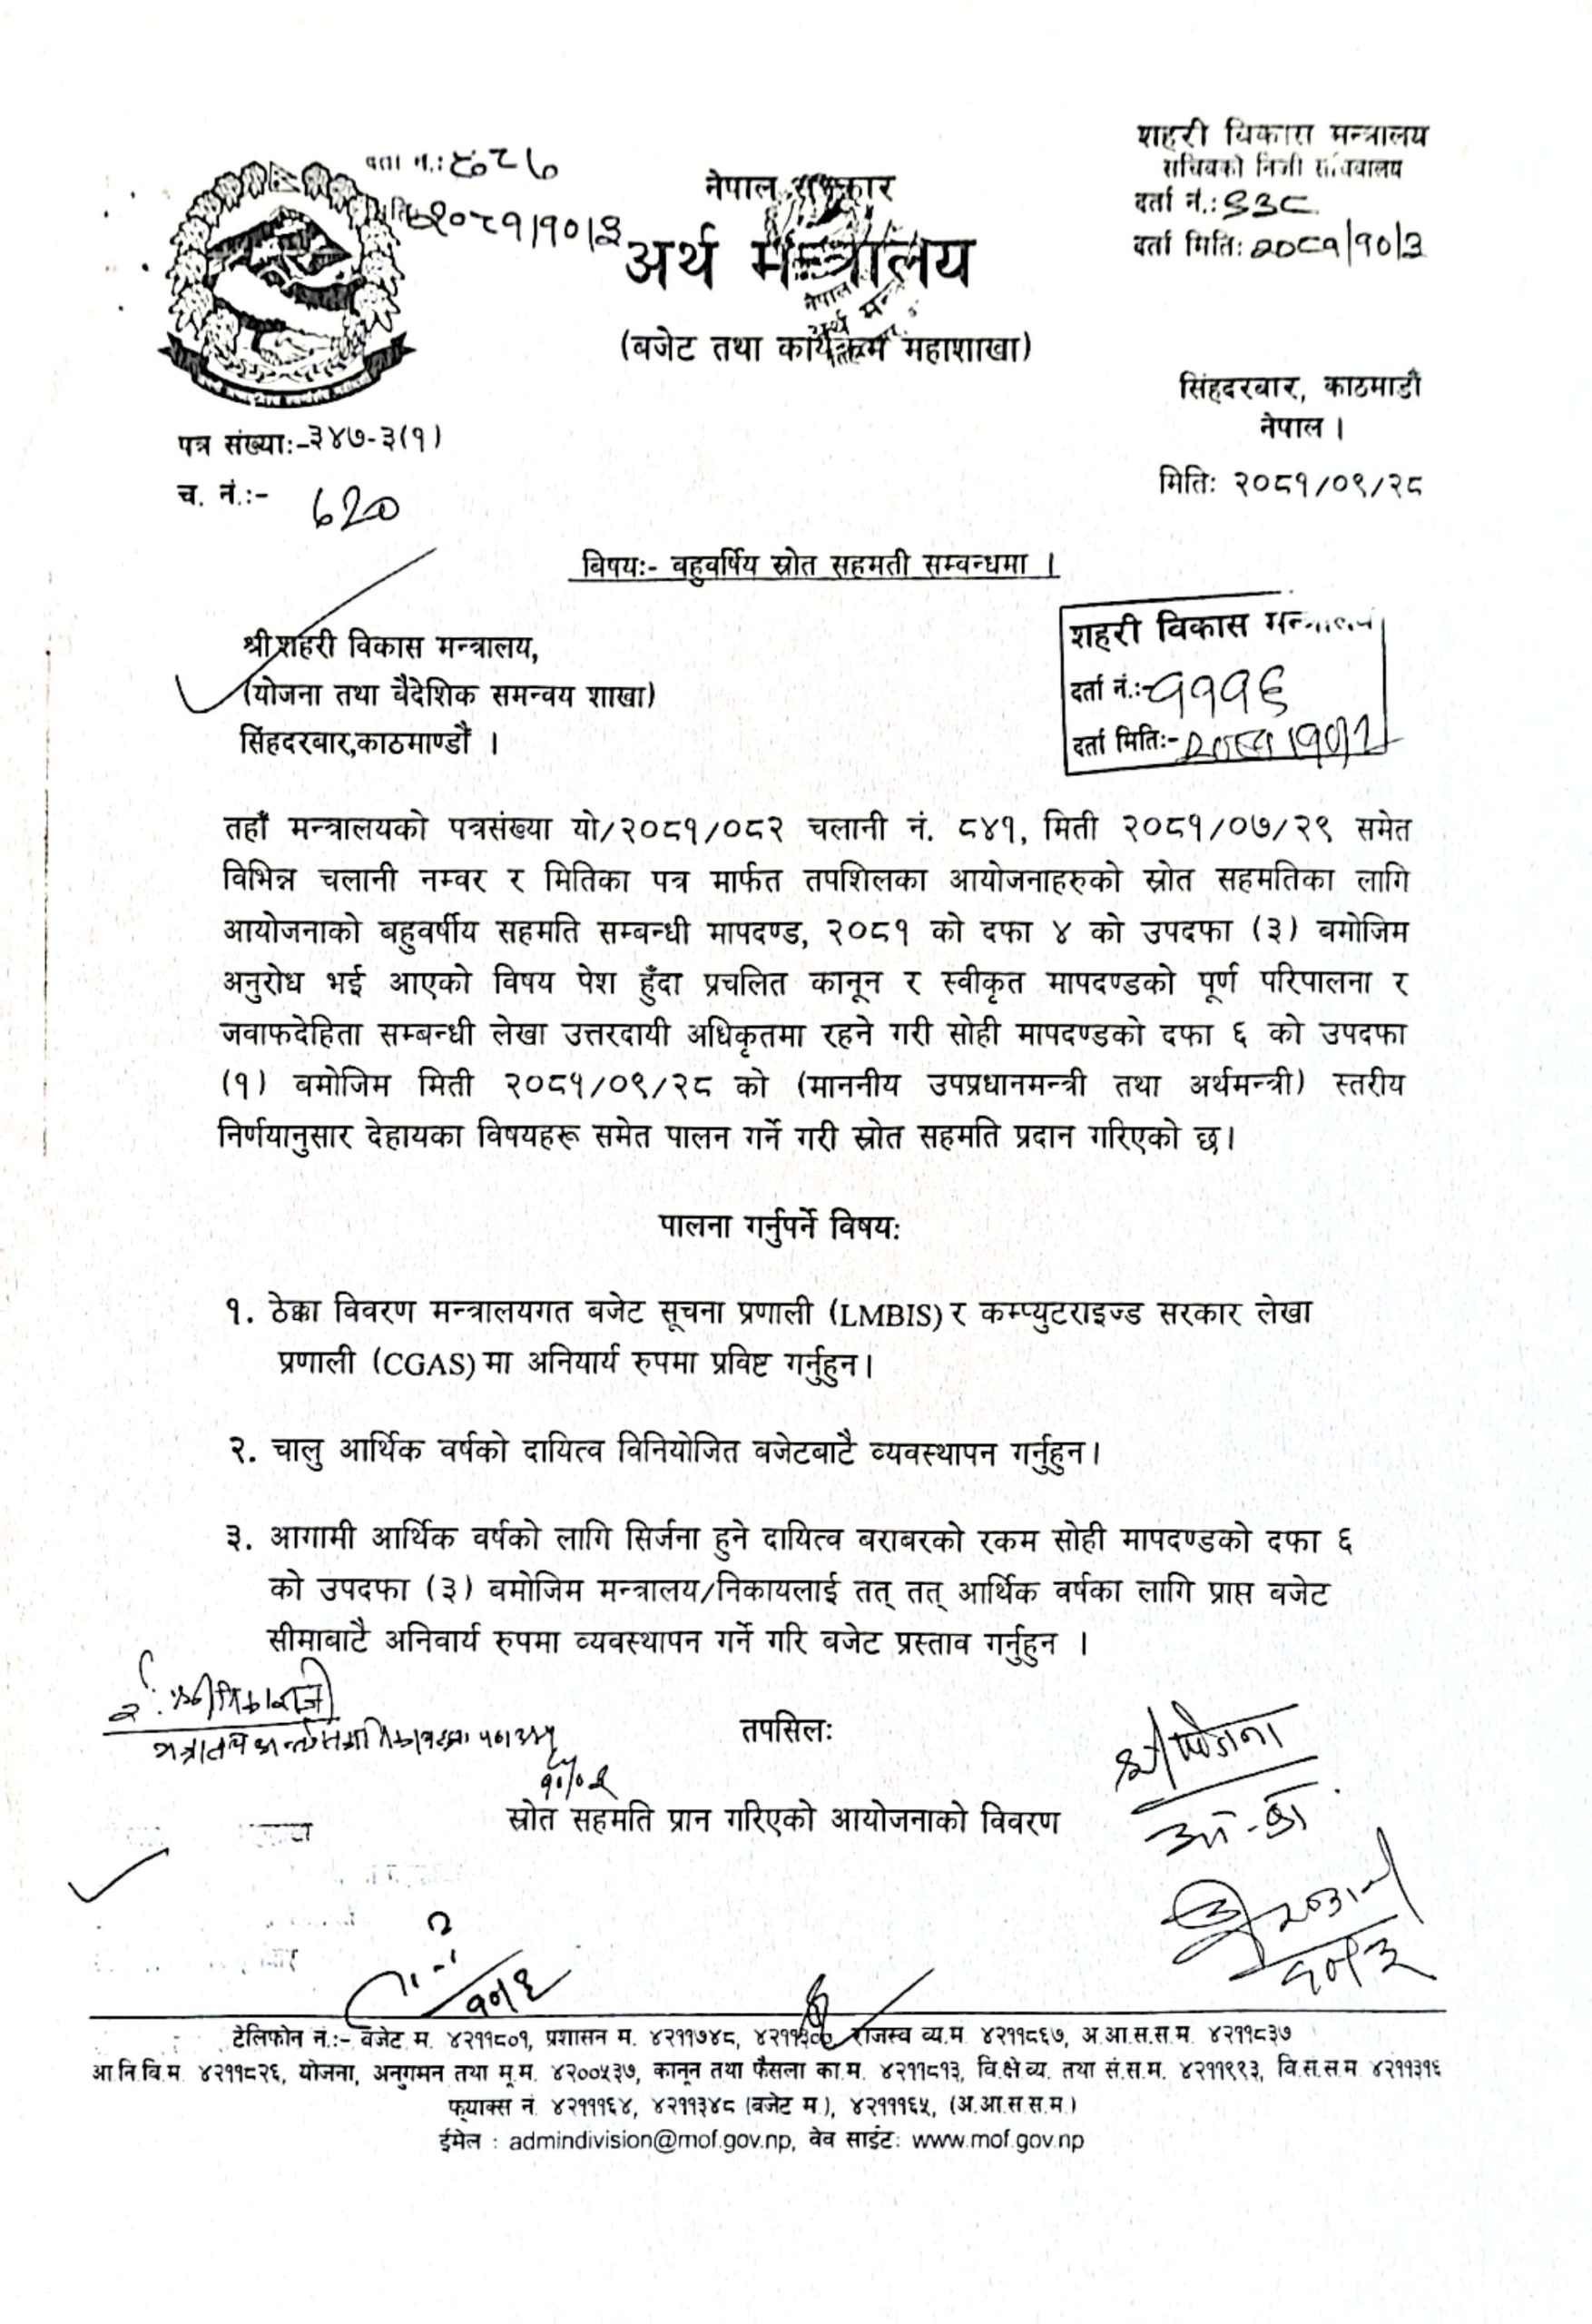 शहरी विकास मन्त्रालय
सचिवको निजी सचिवालय
दर्ता नं.:
दर्ता मिति: २०८१/१०/३
दर्ता नं.:
२०८१/१०/३
नेपाल सरकार
अर्थ मन्त्रालय
(बजेट तथा कार्यक्रम महाशाखा)
सिंहदरबार, काठमाडौं
नेपाल ।
पत्र संख्याः-३४७-३(१)
मितिः २०८१/०९/२८
च. नं.:- ६२०
विषयः- बहुवर्षिय स्रोत सहमती सम्वन्धमा ।
श्री शहरी विकास मन्त्रालय,
(योजना तथा बैदेशिक समन्वय शाखा)
सिंहदरबार,काठमाण्डौं ।
शहरी विकास मन्त्रालय
दर्ता नं.:- १११६
दर्ता मितिः-
तहाँ मन्त्रालयको पत्रसंख्या यो/२०८१/०८२ चलानी नं. ८४१, मिती २०८१/०७/२९ समेत
विभिन्न चलानी नम्वर र मितिका पत्र मार्फत तपशिलका आयोजनाहरुको स्रोत सहमतिका लागि
आयोजनाको बहुवर्षीय सहमति सम्बन्धी मापदण्ड, २०८१ को दफा ४ को उपदफा (३) बमोजिम
अनुरोध भई आएको विषय पेश हुँदा प्रचलित कानून र स्वीकृत मापदण्डको पूर्ण परिपालना र
जवाफदेहिता सम्बन्धी लेखा उत्तरदायी अधिकृतमा रहने गरी सोही मापदण्डको दफा ६ को उपदफा
(१) बमोजिम मिती २०८१/०९/२८ को (माननीय उपप्रधानमन्त्री तथा अर्थमन्त्री) स्तरीय
निर्णयानुसार देहायका विषयहरू समेत पालन गर्ने गरी स्रोत सहमति प्रदान गरिएको छ।
पालना गर्नुपर्ने विषयः
१. ठेक्का विवरण मन्त्रालयगत बजेट सूचना प्रणाली (LMBIS) र कम्प्युटराइज्ड सरकार लेखा
प्रणाली (CGAS) मा अनियार्य रुपमा प्रविष्ट गर्नुहुन।
२. चालु आर्थिक वर्षको दायित्व विनियोजित बजेटबाटै व्यवस्थापन गर्नुहुन।
३. आगामी आर्थिक वर्षको लागि सिर्जना हुने दायित्व बराबरको रकम सोही मापदण्डको दफा ६
को उपदफा (३) बमोजिम मन्त्रालय/निकायलाई तत् तत् आर्थिक वर्षका लागि प्राप्त बजेट
सीमाबाटै अनिवार्य रुपमा व्यवस्थापन गर्ने गरि बजेट प्रस्ताव गर्नुहुन ।
तपसिलः
श्री योजना
स्रोत सहमति प्रान गरिएको आयोजनाको विवरण
१०/३
टेलिफोन नं.:- बजेट म. ४२११८०१, प्रशासन म. ४२११७४८, ४२११३०० राजस्व व्य.म. ४२११८६७, अ.आ.स.स.म. ४२११८३७
आ.नि.वि.म. ४२११८२६, योजना, अनुगमन तथा मू.म. ४२००५३७, कानून तथा फैसला का.म. ४२११८१३, वि.क्षे.व्य. तथा सं.स.म. ४२११९९३, वि.सं.स.म. ४२११३१६
फ्याक्स नं. ४२१११६४, ४२११३४८ (बजेट म.), ४२१११६५, (अ.आ.स.स.म.)
ईमेल : admindivision@mof.gov.np, वेव साईटः www.mof.gov.np